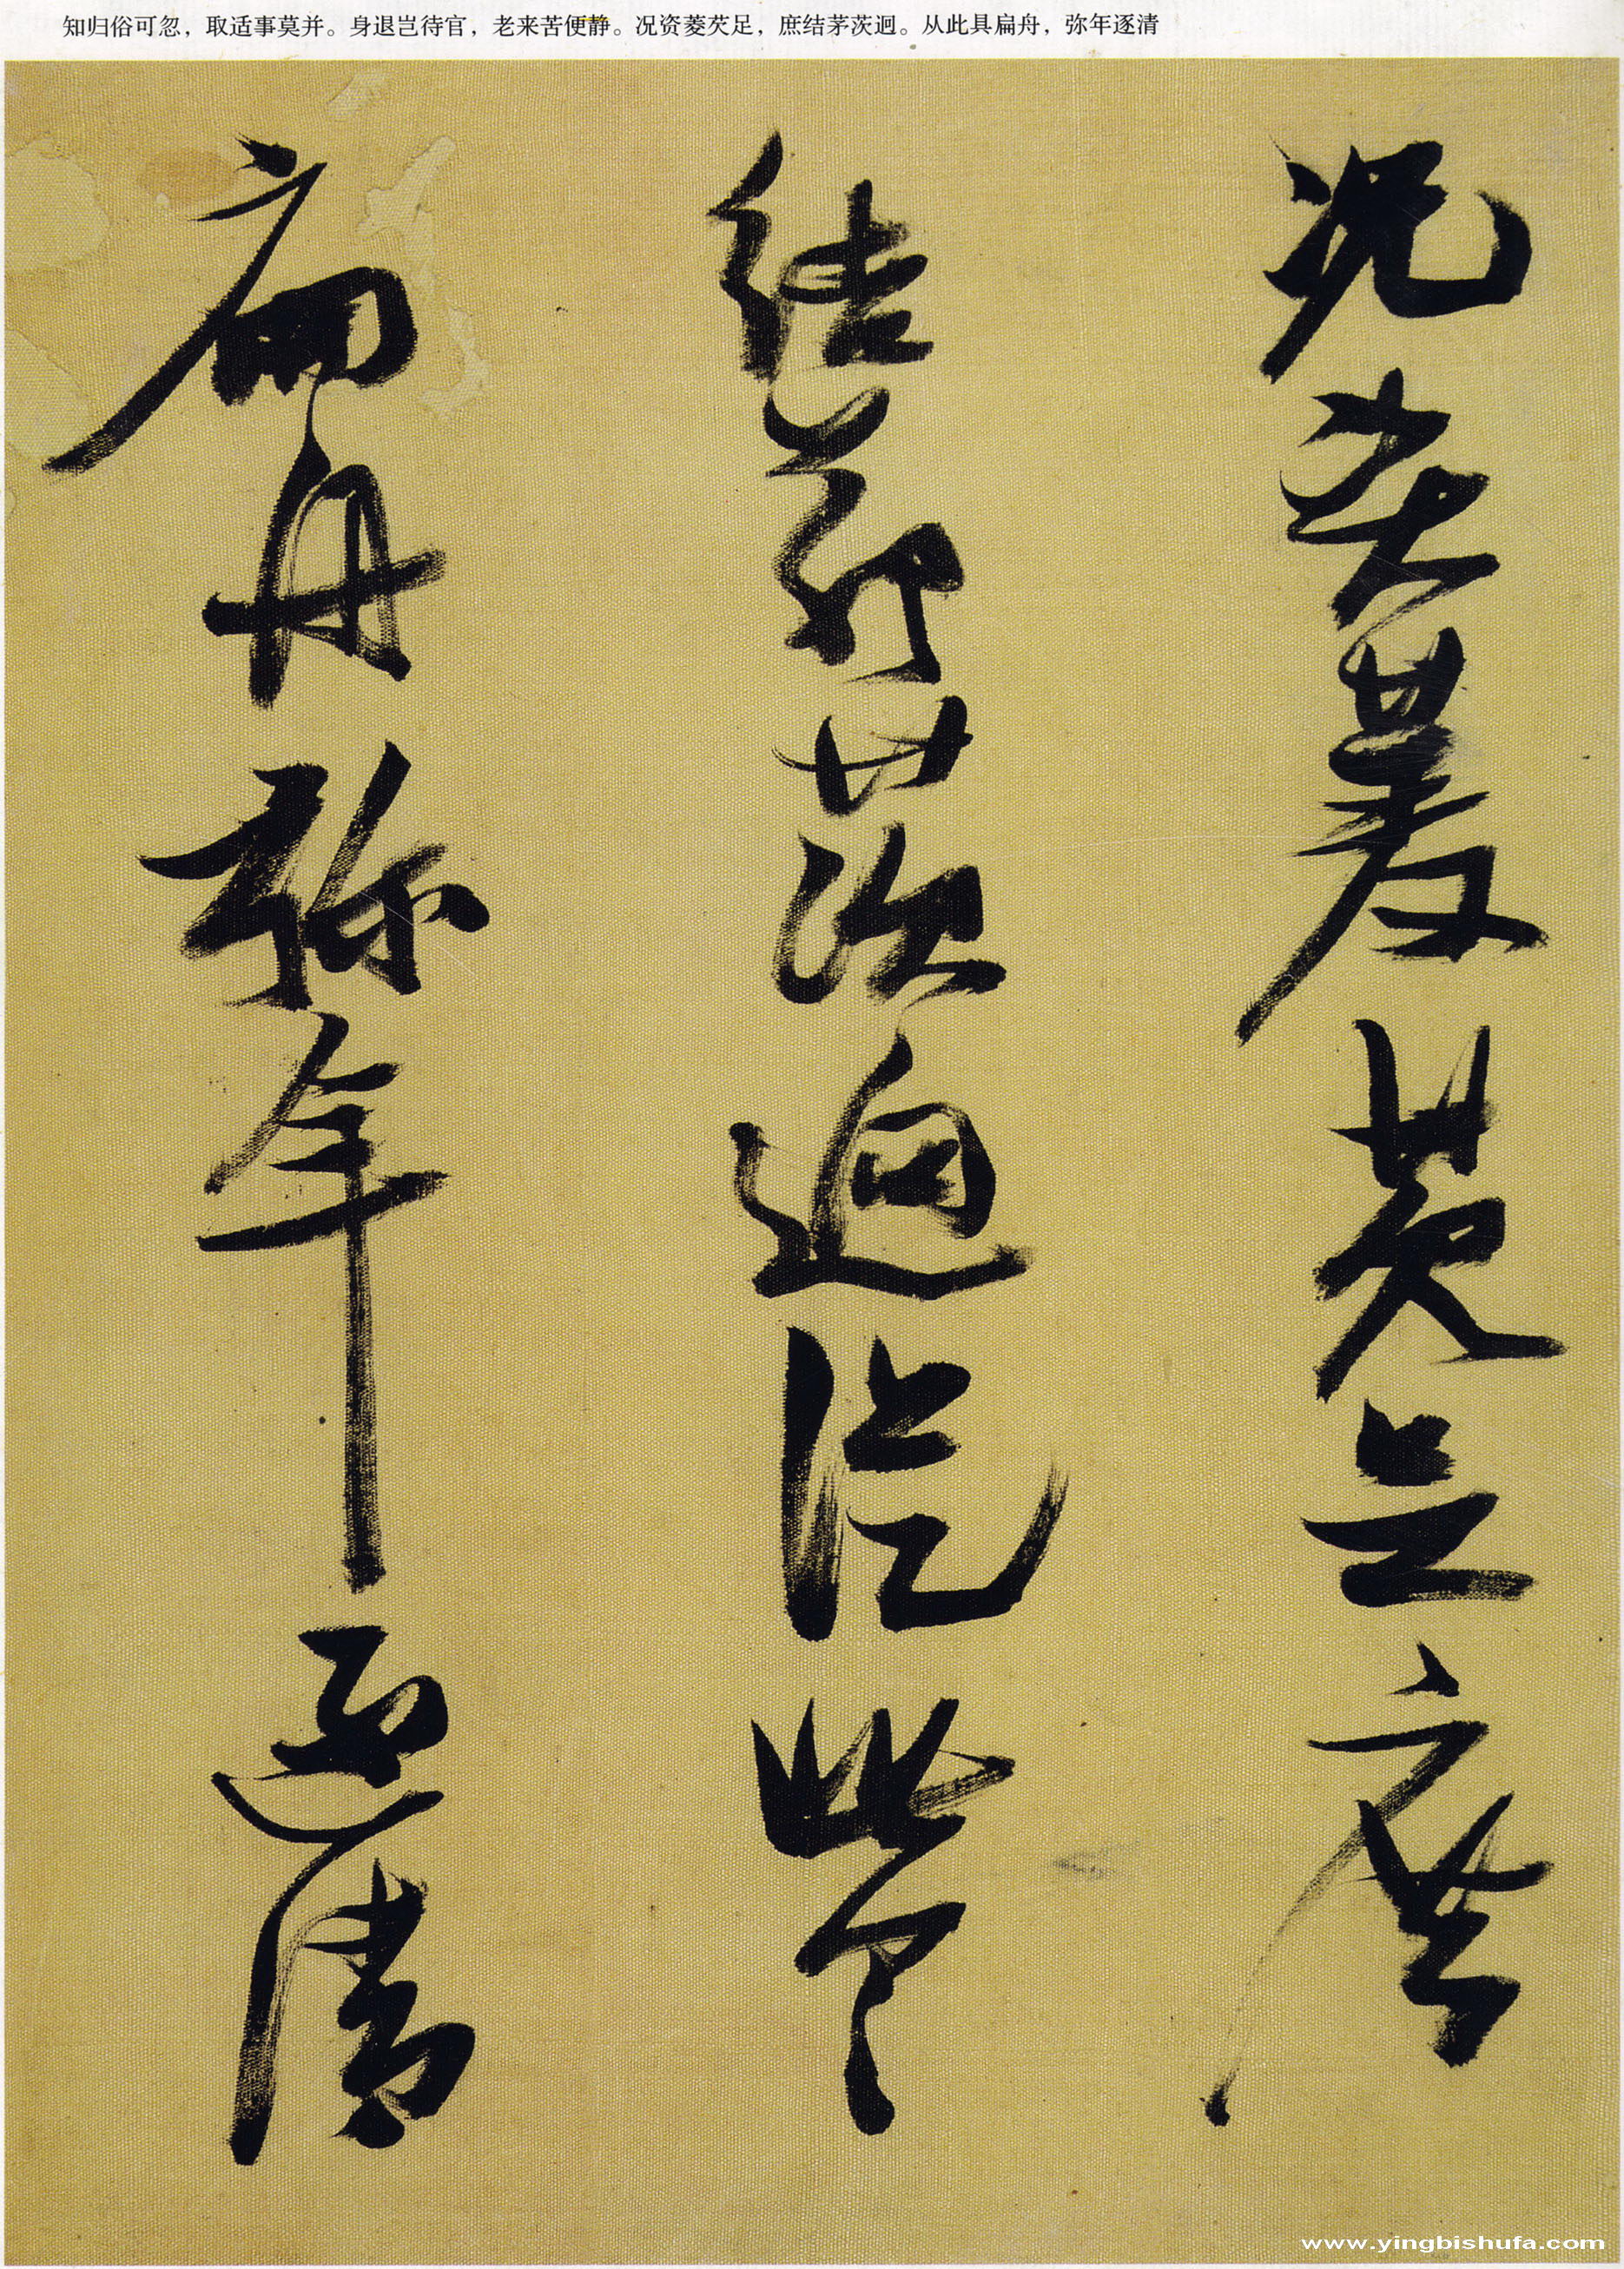 知归俗可忽，取适事莫并。身退岂待官，老来苦便静。况资菱芡足，庶结茅茨迥。从此具扁舟，弥年逐清
况資菱芡足庶
結茅茨迥從此具
扁舟弥年逐清
www.yingbishufa.com